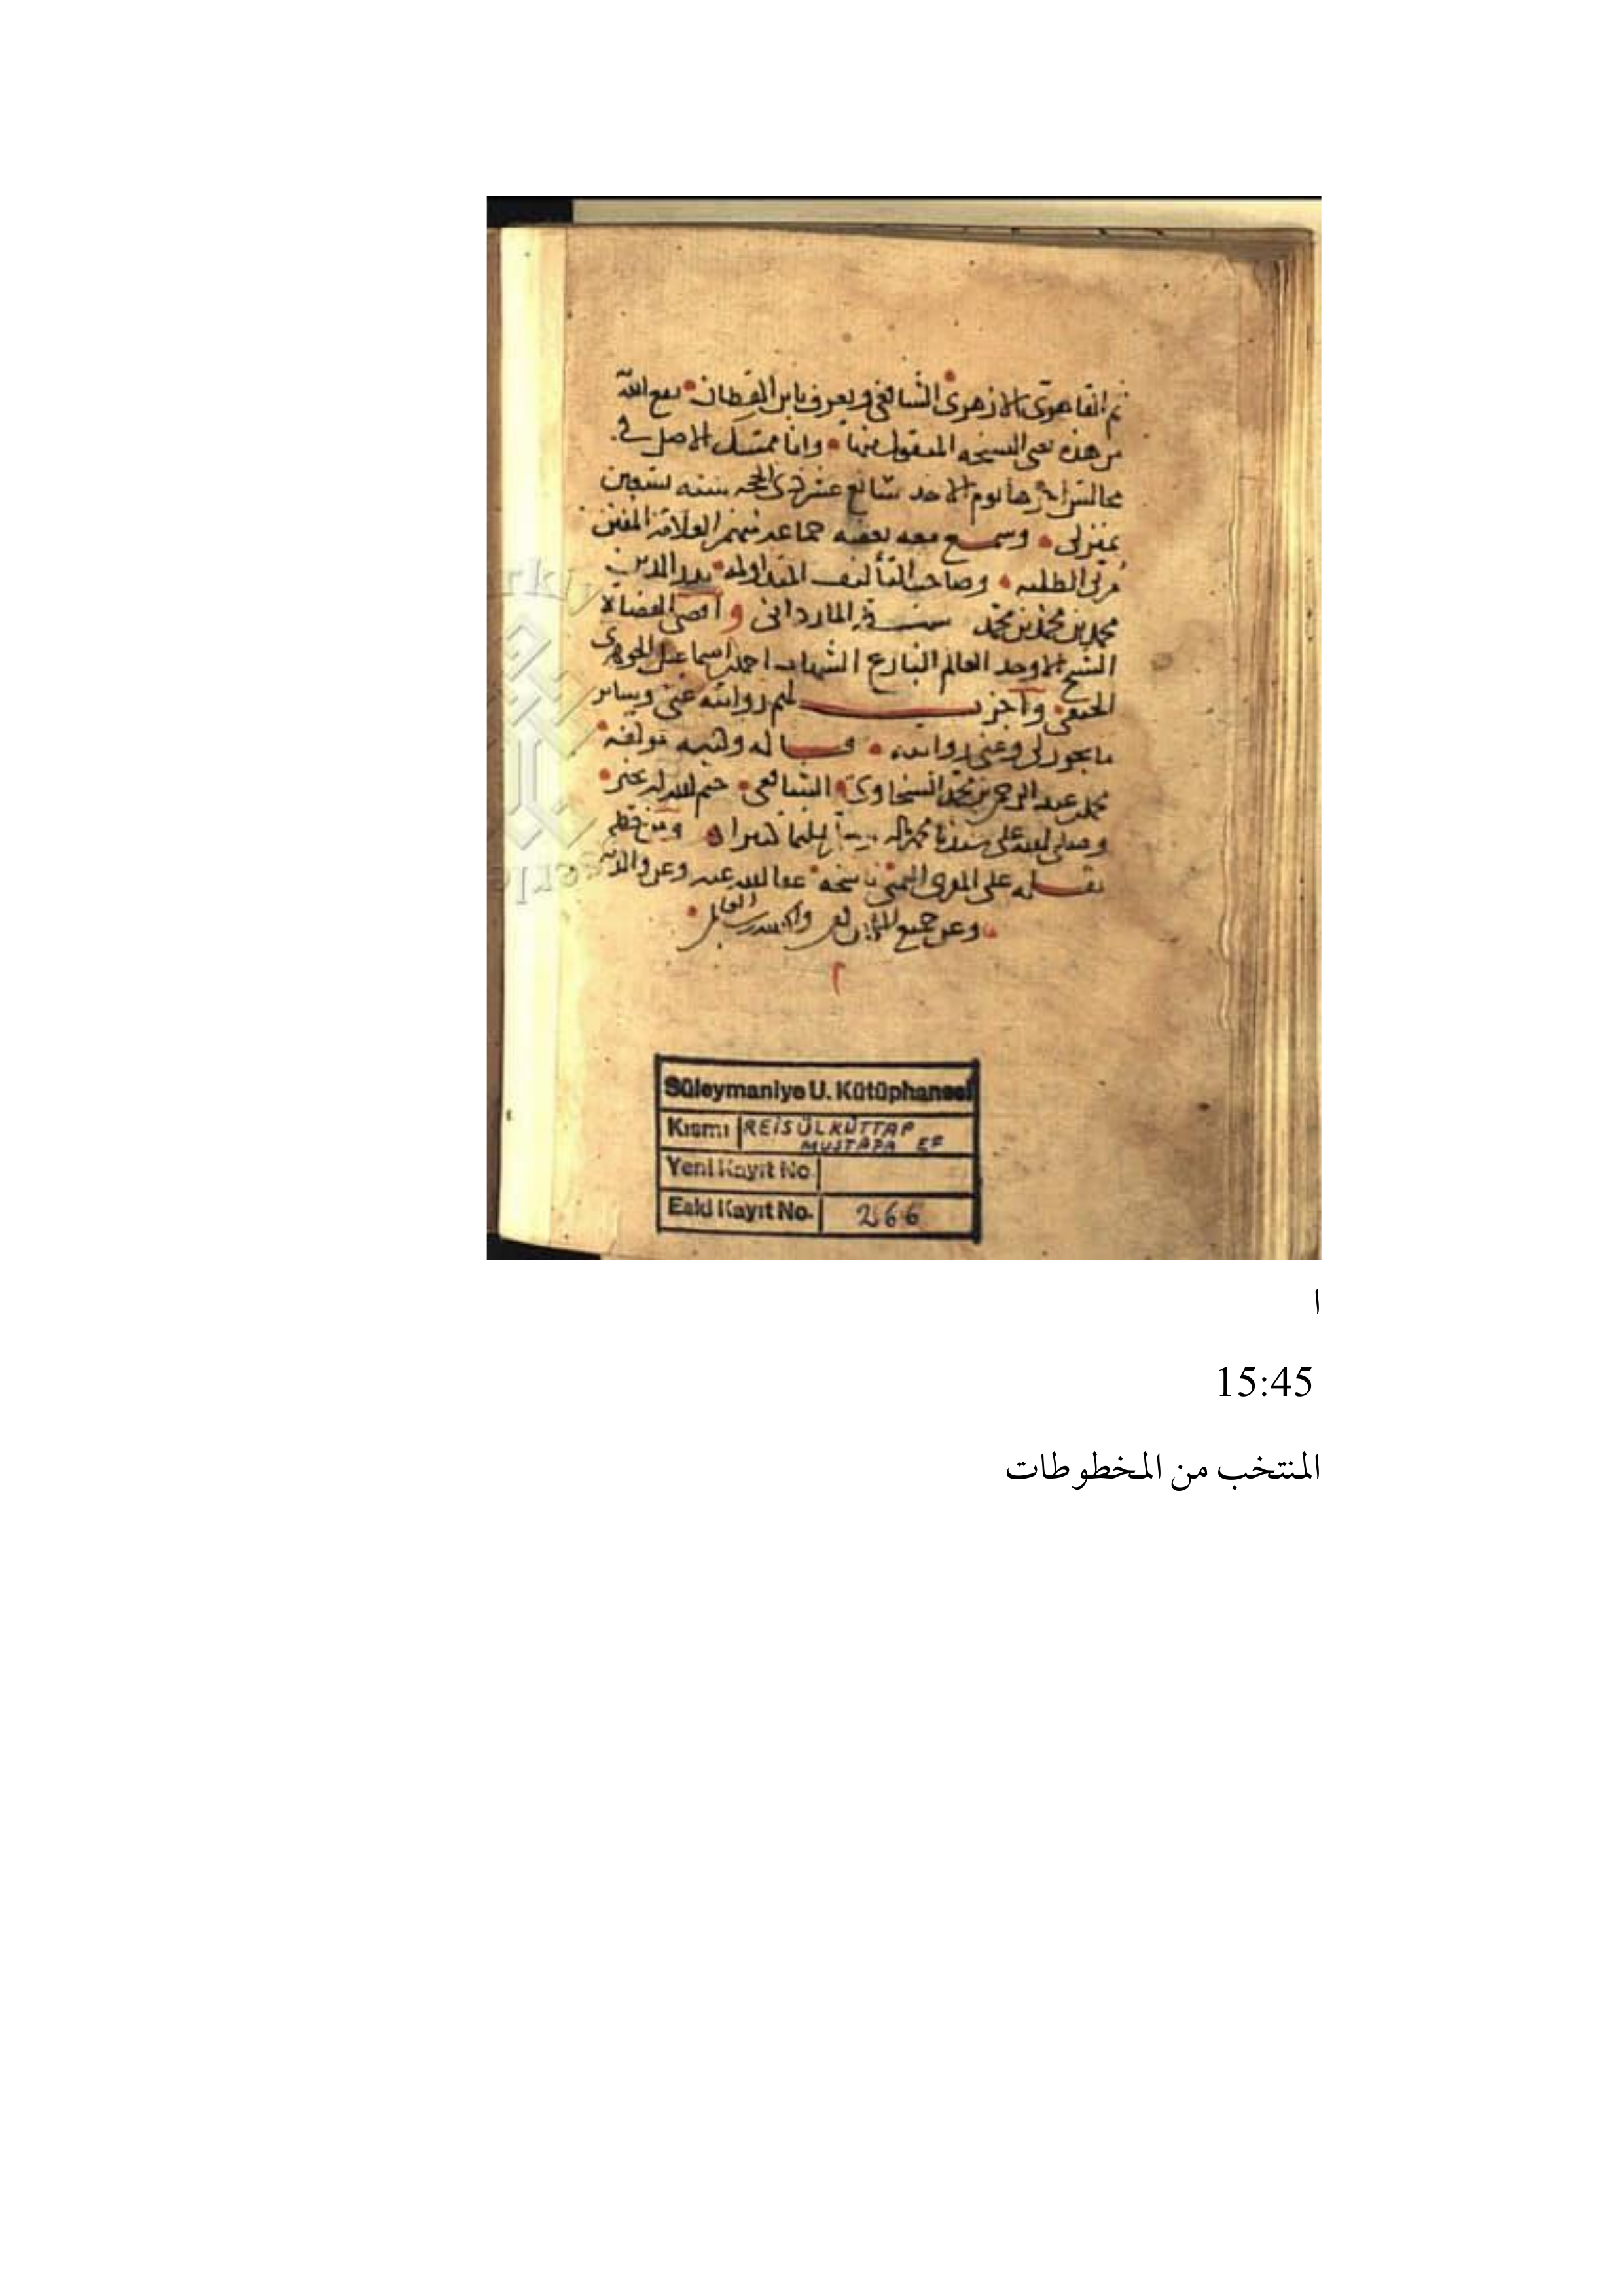 ثم القاهرى الازهرى الشافعى ويعرف بابن القطان نفع الله
من هذه على النسخه المنقول منها وانا ممسك الاصل فى
مجالس اخرها يوم الاحد سابع عشر ذى الحجه سنه تسعين
بمنزلى وسمع معه بعضه جماعه منهم العلامة المفنن
الطلبه وصاحب التآليف المتداوله بدر الدين
محمد بن محمد بن محمد الماردانى و اقضى القضاة
الشيخ الاوحد العالم البارع الشهاب احمد اسماعيل الجوهرى
الحنفى واجزت لهم روايته عنى وساير
ما يجوز لى وعنى روايته قاله وكتبه مولفه
محمد عبد الرحمن بن محمد السخاوى الشافعى ختم الله له بخير
وصلى الله على سيدنا محمد وسلم تسليما كثيرا ومن خطه
نقله على اليمنى ناسخه عفا الله عنه وعن والديه
وعن جميع
Süleymaniye U. Kütüphanesi
Kısmı REİSÜLKÜTTAP
MUSTAFA EF
Yeni Kayıt No
Eski Kayıt No. 266
ا
15:45
المنتخب من المخطوطات